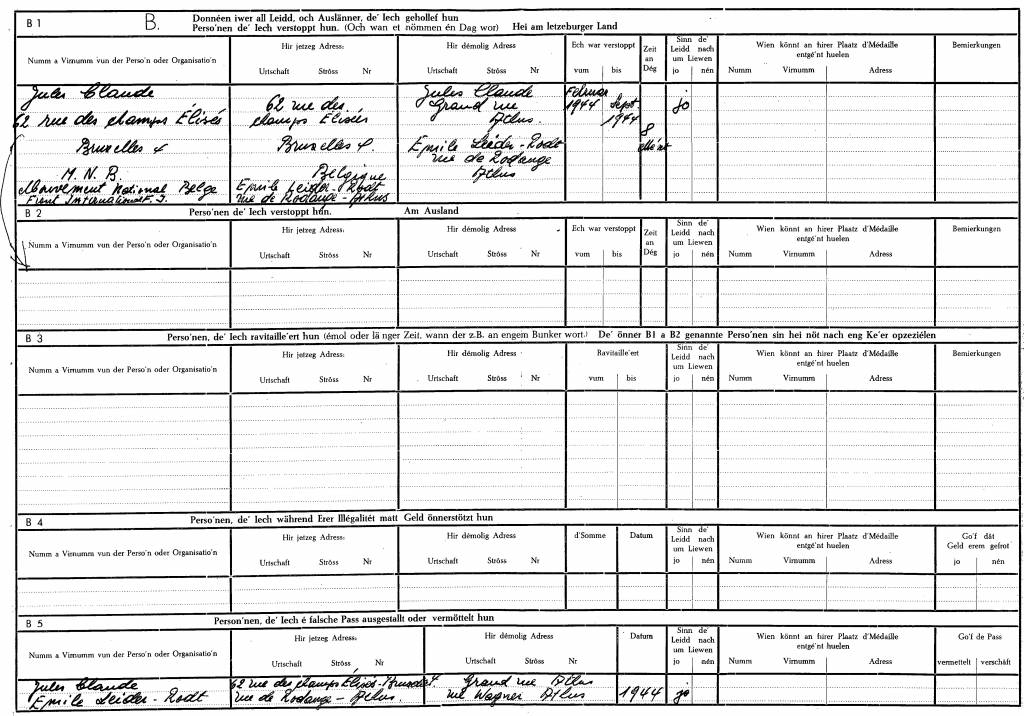 B 1 B. Donnéen iwer all Leidd, och Auslänner, de' Iech gehollef hun
Perso'nen de' Iech verstoppt hun. (Och wan et nömmen én Dag wor) Hei am letzeburger Land
Numm a Virnumm vun der Perso'n oder Organisatio'n
Hir jetzeg Adress:
Urtschaft Ströss Nr
Hir démolig Adress
Urtschaft Ströss Nr
Ech war verstoppt
vum bis
Zeit
an
Dég
Sinn de'
Leidd nach
um Liewen
jo nén
Wien könnt an hirer Plaatz d'Médaille
entgé'nt huelen
Numm Virnumm Adress
Bemierkungen
Jules Claude Jules Claude Februar
62 rue des champs Élisés 62 rue des champs Élisés Grand rue Athus. 1944 Sept 1944 jo
8
Bruxelles 4 Bruxelles 4. Emile Leider-Rodt
rue de Rodange
M. N. B. Belgique Athus
Mouvement National Belge Emile Leider-Rodt
Front International F. I. rue de Rodange - Athus
B 2 Perso'nen de' Iech verstoppt hun. Am Ausland
Numm a Virnumm vun der Perso'n oder Organisatio'n
Hir jetzeg Adress:
Urtschaft Ströss Nr
Hir démolig Adress
Urtschaft Ströss Nr
Ech war verstoppt
vum bis
Zeit
an
Dég
Sinn de'
Leidd nach
um Liewen
jo nén
Wien könnt an hirer Plaatz d'Médaille
entgé'nt huelen
Numm Virnumm Adress
Bemierkungen
B 3 Perso'nen, de' Iech ravitaille'ert hun (émol oder länger Zeit, wann der z.B. an engem Bunker wort.) De' önner B1 a B2 genannte Perso'nen sin hei nöt nach eng Ke'er opzeziélen
Numm a Virnumm vun der Perso'n oder Organisatio'n
Hir jetzeg Adress:
Urtschaft Ströss Nr
Hir démolig Adress
Urtschaft Ströss Nr
Ravitaille'ert
vum bis
Sinn de'
Leidd nach
um Liewen
jo nén
Wien könnt an hirer Plaatz d'Médaille
entgé'nt huelen
Numm Virnumm Adress
Bemierkungen
B 4 Perso'nen, de' Iech während Erer Illégalitét matt Geld önnerstötzt hun
Numm a Virnumm vun der Perso'n oder Organisatio'n
Hir jetzeg Adress:
Urtschaft Ströss Nr
Hir démolig Adress
Urtschaft Ströss Nr
d'Somme
Datum
Sinn de'
Leidd nach
um Liewen
jo nén
Wien könnt an hirer Plaatz d'Médaille
entgé'nt huelen
Numm Virnumm Adress
Go'f dât
Geld erem gefrot
jo nén
B 5 Person'nen, de' Iech é falsche Pass ausgestallt oder vermöttelt hun
Numm a Virnumm vun der Perso'n oder Organisatio'n
Hir jetzeg Adress:
Urtschaft Ströss Nr
Hir démolig Adress
Urtschaft Ströss Nr
Datum
Sinn de'
Leidd nach
um Liewen
jo nén
Wien könnt an hirer Plaatz d'Médaille
entgé'nt huelen
Numm Virnumm Adress
Go'f de Pass
vermettelt verschäft
Jules Claude 62 rue des champs Élisés - Grand rue Athus
Emile Leider-Rodt rue de Rodange - Athus. rue Wagner Athus 1944 jo